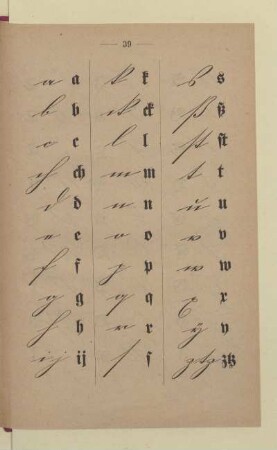 — 30 —
a a k k s s
b b ck ck ß ß
c c l l st st
ch ch m m t t
d d n n u u
e e o o v v
f f p p w w
g g q q x x
h h r r y y
i j ij ſ ſ z tz z tz